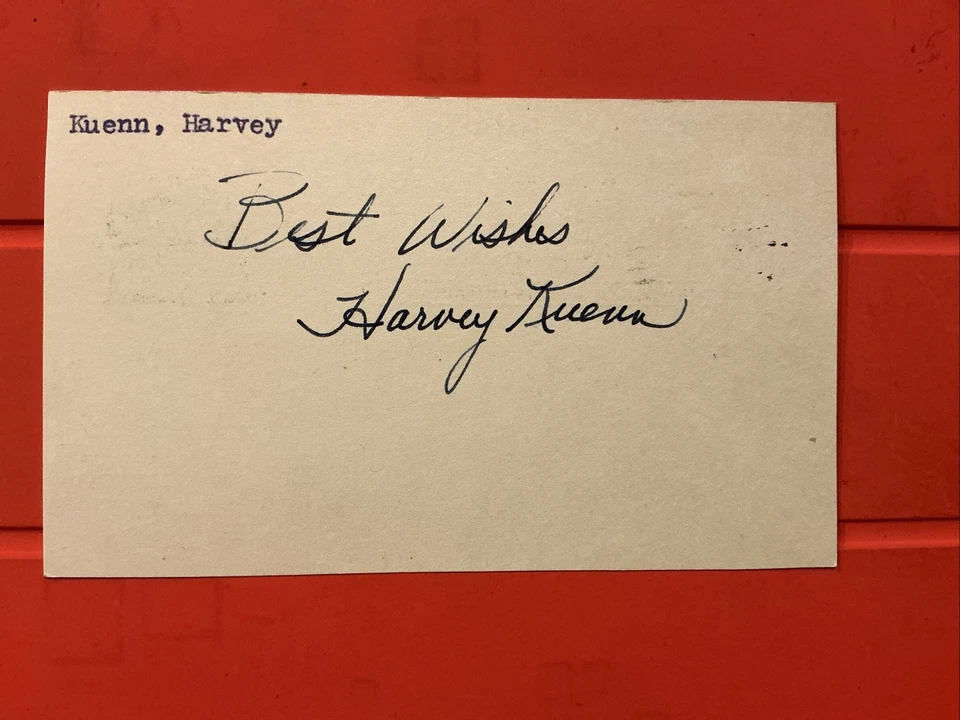 Kuenn, Harvey
Best Wishes
Harvey Kuenn